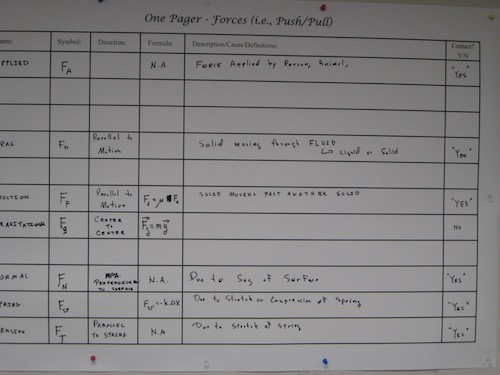 One Pager - Forces (i.e., Push/Pull)
Symbol: Direction: Formula: Description/Cause/Definitions: Contact? Y/N
F_A N.A Force Applied by Person, Animal, "Yes"
F_D Parallel to Motion Solid moving through FLUID "Yes"
↳ Liquid or Solid
F_F Parallel to Motion SOLID MOVING PAST ANOTHER SOLID "YES"
F_g CENTER TO CENTER F_g = mg NO
F_N PERPENDICULAR TO SURFACE N.A. Due to Sag of Surface "Yes"
F_SP F_SP = -kΔX Due to Stretch or Compression of Spring "Yes"
F_T PARALLEL TO STRING N.A Due to Stretch of String "Yes"